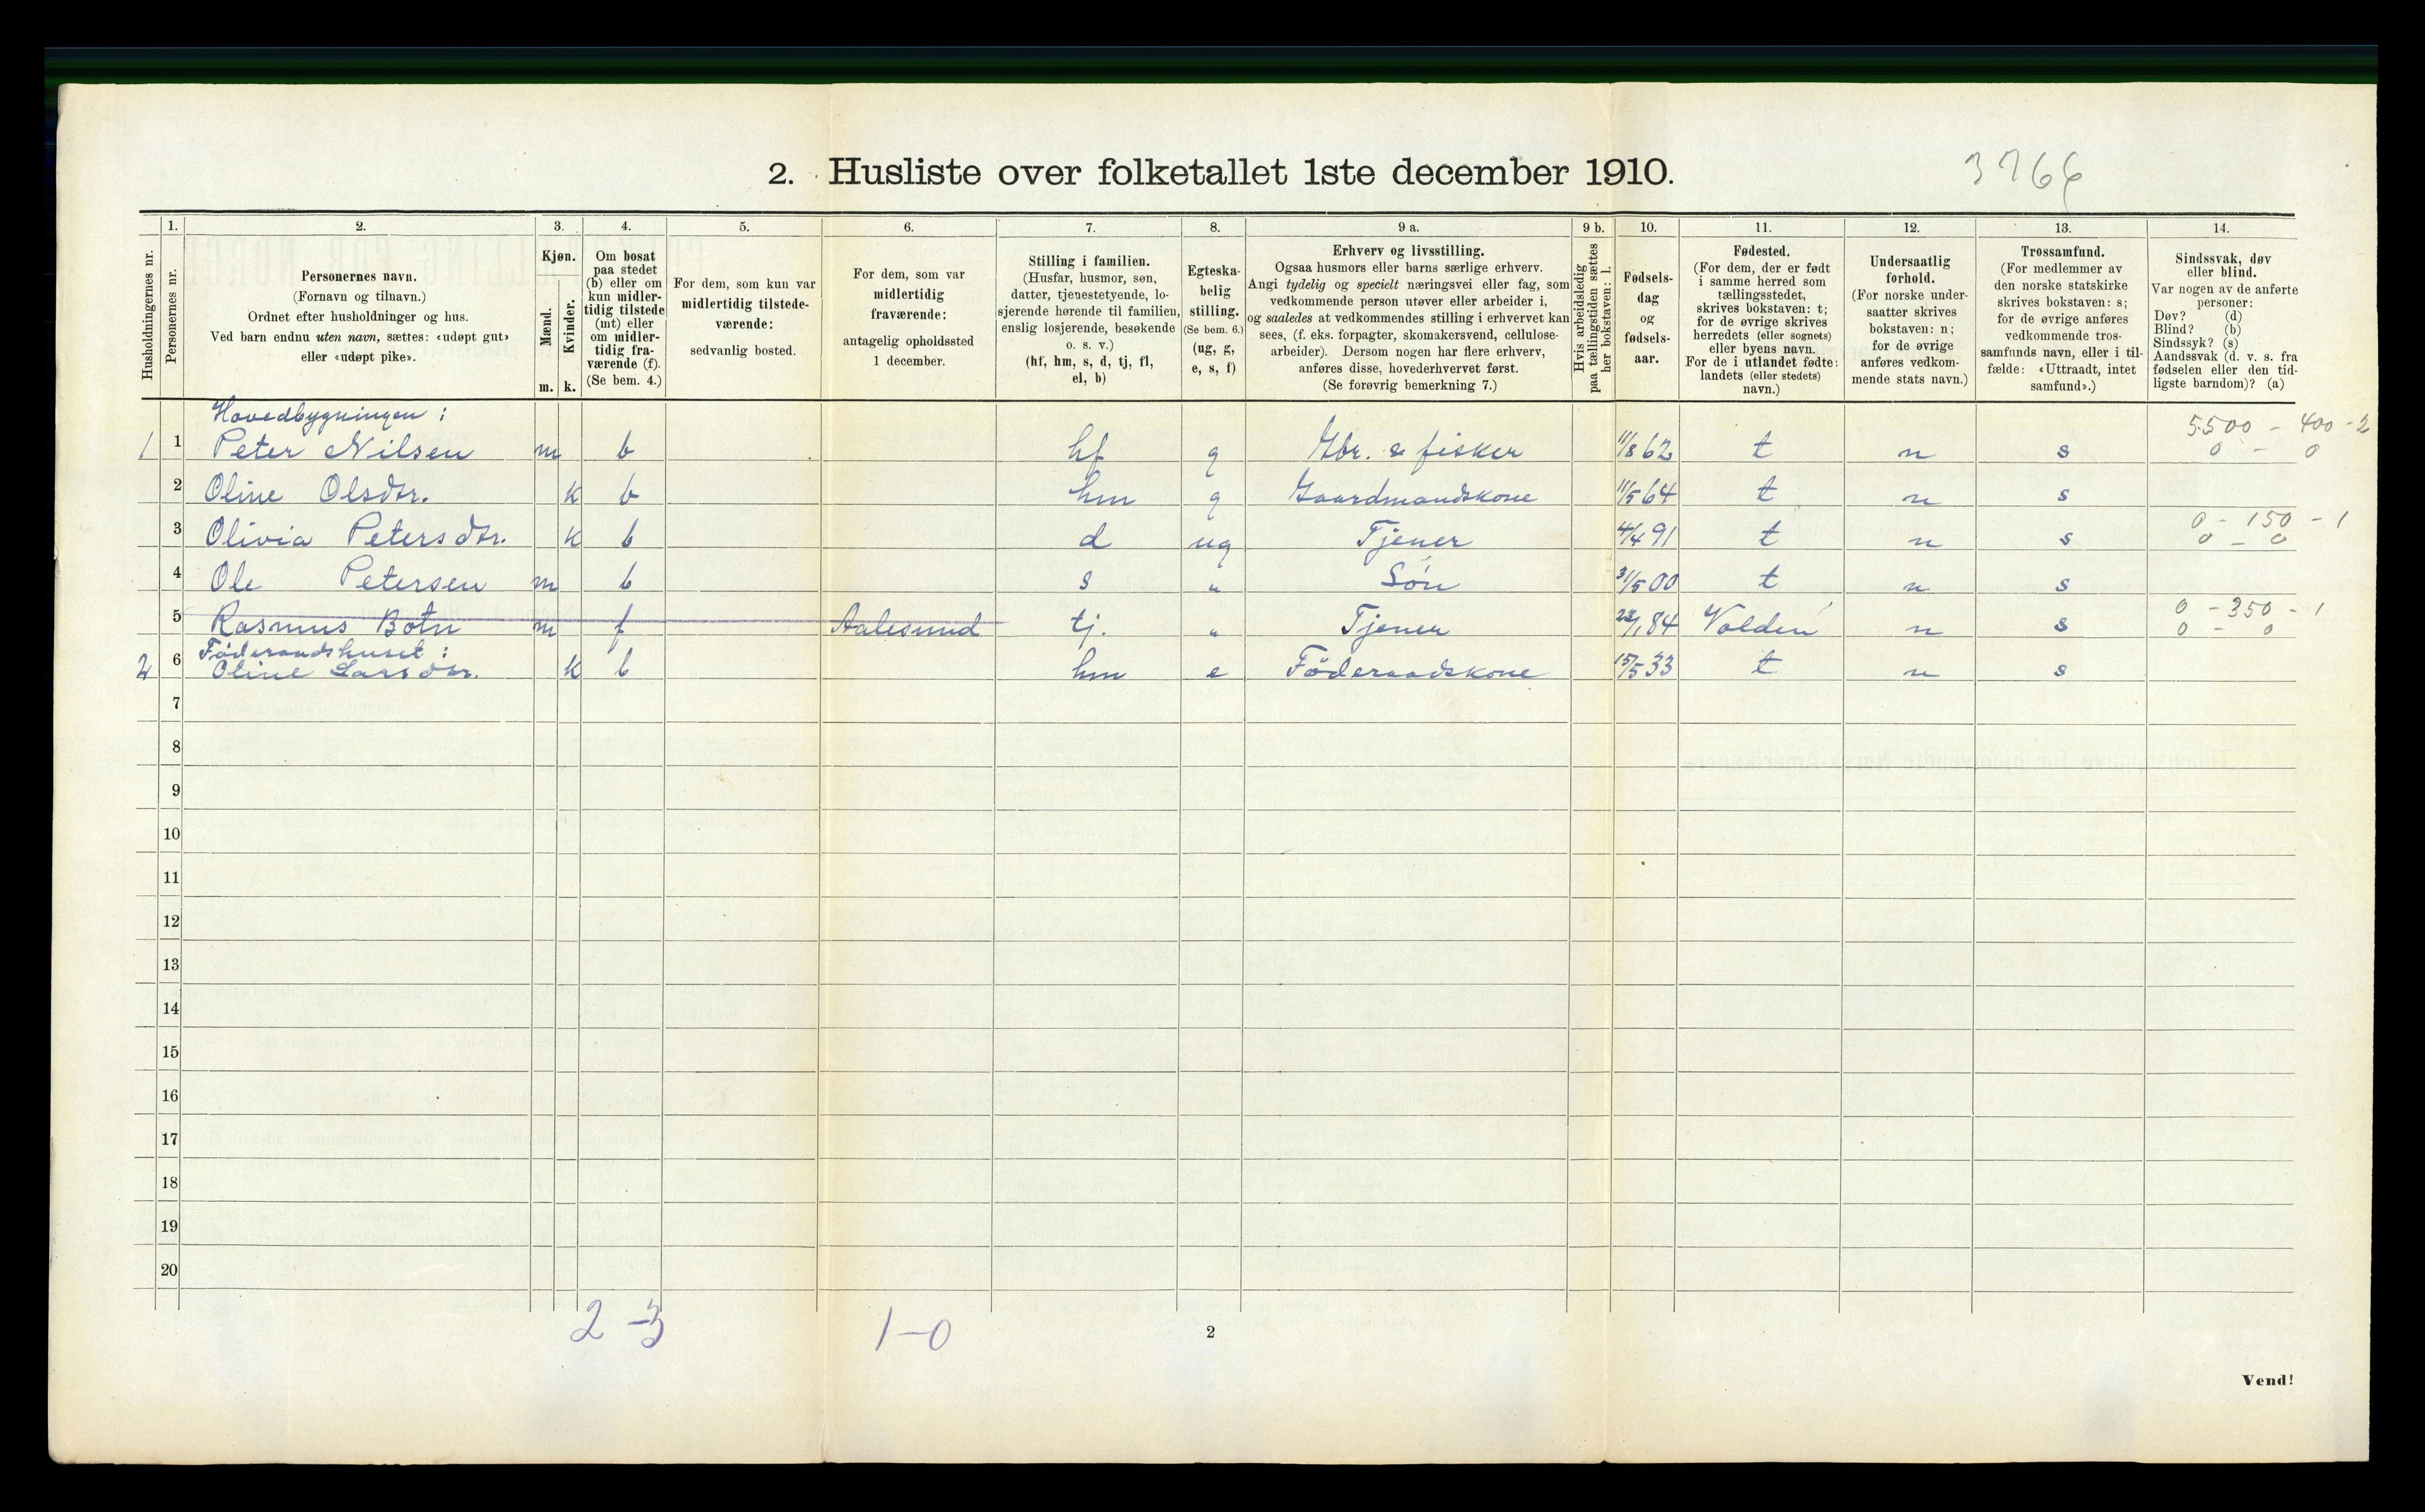 2. Husliste over folketallet 1ste december 1910.
3766
Husholdningernes nr.
1.
Personernes nr.
2.
Personernes navn.
(Fornavn og tilnavn.)
Ordnet efter husholdninger og hus.
Ved barn endnu uten navn, sættes: «udøpt gut»
eller «udøpt pike».
3.
Kjøn.
Mænd.
Kvinder.
m. k.
4.
Om bosat
paa stedet
(b) eller om
kun midler-
tidig tilstede
(mt) eller
om midler-
tidig fra-
værende (f).
(Se bem. 4.)
5.
For dem, som kun var
midlertidig tilstede-
værende:
sedvanlig bosted.
6.
For dem, som var
midlertidig
fraværende:
antagelig opholdssted
1 december.
7.
Stilling i familien.
(Husfar, husmor, søn,
datter, tjenestetyende, lo-
sjerende hørende til familien,
enslig losjerende, besøkende
o. s. v.)
(hf, hm, s, d, tj, fl,
el, b)
8.
Egteska-
belig
stilling.
(Se bem. 6.)
(ug, g,
e, s, f)
9 a.
Erhverv og livsstilling.
Ogsaa husmors eller barns særlige erhverv.
Angi tydelig og specielt næringsvei eller fag, som
vedkommende person utøver eller arbeider i,
og saaledes at vedkommendes stilling i erhvervet kan
sees, (f. eks. forpagter, skomakersvend, cellulose-
arbeider). Dersom nogen har flere erhverv,
anføres disse, hovederhvervet først.
(Se forøvrig bemerkning 7.)
9 b.
Hvis arbeidsledig
paa tællingstiden sættes
her bokstaven: l.
10.
Fødsels-
dag
og
fødsels-
aar.
11.
Fødested.
(For dem, der er født
i samme herred som
tællingsstedet,
skrives bokstaven: t;
for de øvrige skrives
herredets (eller sognets)
eller byens navn.
For de i utlandet fødte:
landets (eller stedets)
navn.)
12.
Undersaatlig
forhold.
(For norske under-
saatter skrives
bokstaven: n;
for de øvrige
anføres vedkom-
mende stats navn.)
13.
Trossamfund.
(For medlemmer av
den norske statskirke
skrives bokstaven: s;
for de øvrige anføres
vedkommende tros-
samfunds navn, eller i til-
fælde: «Uttraadt, intet
samfund».)
14.
Sindssvak, døv
eller blind.
Var nogen av de anførte
personer:
Døv? (d)
Blind? (b)
Sindssyk? (s)
Aandssvak (d. v. s. fra
fødselen eller den tid-
ligste barndom)? (a)
Hovedbygningen :
5500 - 400 - 2
1 1 Peter Nilsen m b hf g Gbr. & fisker 11/8 62 t n s 0 - 0
2 Oline Olsdtr. k b hm g Gaardmandskone 11/5 64 t n s
0 - 150 - 1
3 Olivia Petersdtr. k b d ug Tjener 4/4 91 t n s 0 - 0
4 Ole Petersen m b s " Søn 31/5 00 t n s
0 - 350 - 1
5 Rasmus Botn m f Aalesund tj. " Tjener 22/1 84 Volden n s 0 - 0
Föderaadshuset :
2 6 Oline Larsdtr. k b hm e Föderaadskone 15/5 33 t n s
7
8
9
10
11
12
13
14
15
16
17
18
19
20
2 - 3 1 - 0
2
Vend!